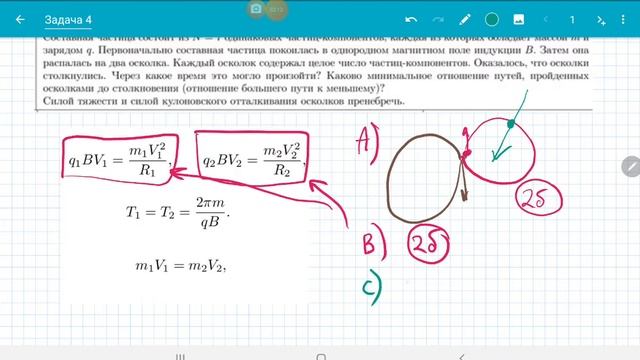 Задача 4
1
Составная частица состоит из N = 7 одинаковых частиц-компонентов, каждая из которых обладает массой m и
зарядом q. Первоначально составная частица покоилась в однородном магнитном поле индукции B. Затем она
распалась на два осколка. Каждый осколок содержал целое число частиц-компонентов. Оказалось, что осколки
столкнулись. Через какое время это могло произойти? Каково минимальное отношение путей, пройденных
осколками до столкновения (отношение большего пути к меньшему)?
Силой тяжести и силой кулоновского отталкивания осколков пренебречь.
A)
q₁BV₁ = m₁V₁²/R₁, q₂BV₂ = m₂V₂²/R₂,
2б
T₁ = T₂ = 2πm/qB.
B) 2б
m₁V₁ = m₂V₂,
C)